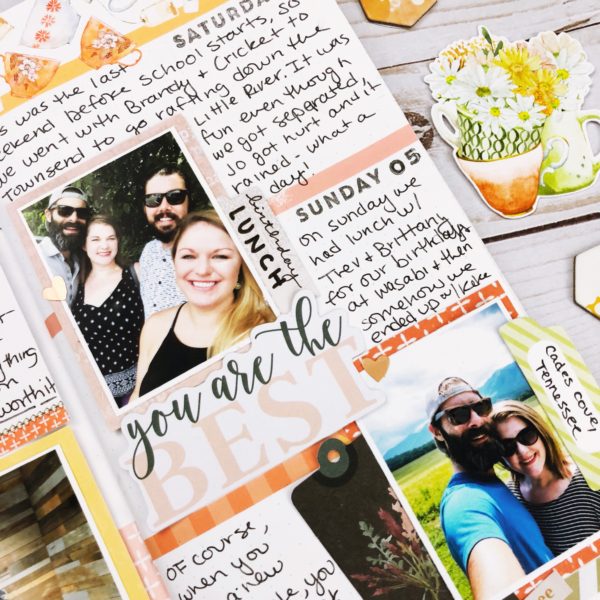 SATURDAY
was the last
weekend before school starts, so
we went with Brandy & Cricket to
Townsend to go rafting down the
Little River. It was
fun even though
we got separated
Jo got hurt and it
rained. what a
day!
birthday
LUNCH
SUNDAY 05
on Sunday we
had lunch w/
Trev & Brittany
for our birthdays
at wasabi & then
somehow we
ended up w/ Keke
worth it
you are the
BEST
Cades cove,
Tennessee
of course,
when you
new
you